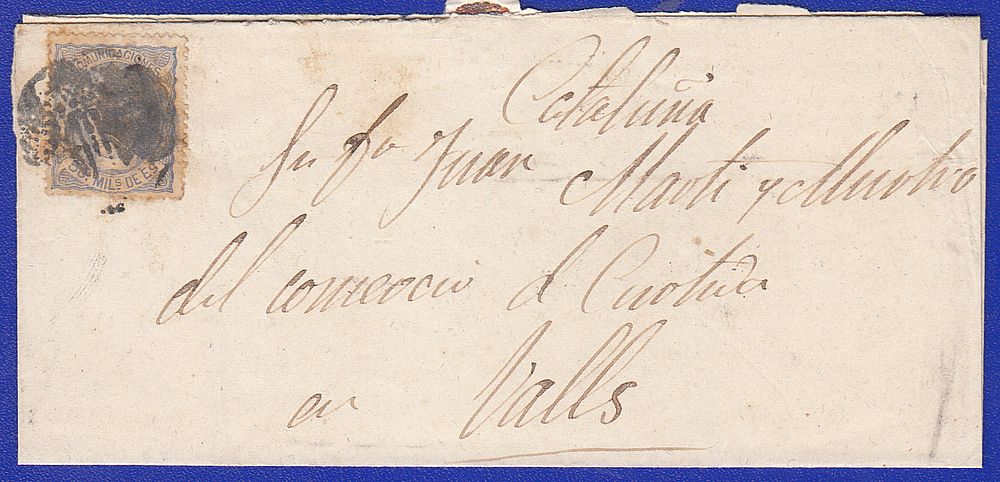 COMUNICACIONES
50 MILS DE ES
Cataluña
Sr Dn Juan Marti y
del comercio de
en Valls